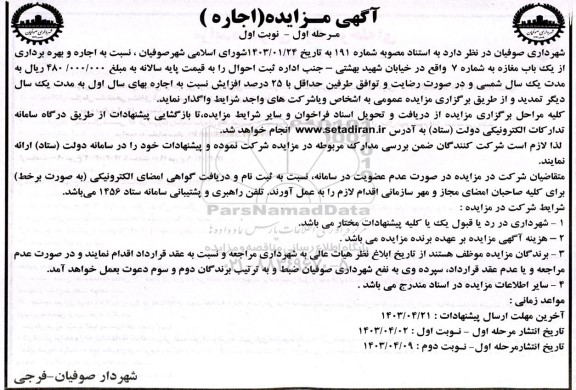 آگهی مـزایده(اجاره )
مـرحله اول - نوبت اول
شهرداری صوفیان در نظر دارد به استناد مصوبه شماره ۱۹۱ به تاریخ ۱۴۰۳/۰۱/۲۴شورای اسلامی شهرصوفیان ، نسبت به اجاره و بهره برداری
از یک باب مغازه به شماره ۷ واقع در خیابان شهید بهشتی – جنب اداره ثبت احوال را به قیمت پایه سالانه به مبلغ ۴۸۰/۰۰۰/۰۰۰ ریال به
مدت یک سال شمسی و در صورت رضایت و توافق طرفین حداقل با ۲۵ درصد افزایش نسبت به اجاره بهای سال اول به مدت یک سال
دیگر تمدید و از طریق برگزاری مزایده عمومی به اشخاص ویاشرکت های واجد شرایط واگذار نماید.
کلیه مراحل برگزاری مزایده از دریافت و تحویل اسناد فراخوان و سایر شرایط مزایده،تا بازگشایی پیشنهادات از طریق درگاه سامانه
تدارکات الکترونیکی دولت (ستاد) به آدرس www.setadiran.ir انجام خواهد شد.
لذا لازم است شرکت کنندگان ضمن بررسی مدارک مربوطه در مزایده شرکت نموده و پیشنهادات خود را در سامانه دولت (ستاد) ارائه
نمایند.
متقاضیان شرکت در مزایده در صورت عدم عضویت در سامانه، نسبت به ثبت نام و دریافت گواهی امضای الکترونیکی (به صورت برخط)
برای کلیه صاحبان امضای مجاز و مهر سازمانی اقدام لازم را به عمل آورند. تلفن راهبری و پشتیبانی سامانه ستاد ۱۴۵۶ می‌باشد.
شرایط شرکت در مزایده :
۱ – شهرداری در رد یا قبول یک یا کلیه پیشنهادات مختار می باشد.
۲ – هزینه آگهی مزایده بر عهده برنده مزایده می باشد .
۳ - برندگان مزایده موظف هستند از تاریخ ابلاغ نظر هیات عالی به شهرداری مراجعه و نسبت به عقد قرارداد اقدام نمایند و در صورت عدم
مراجعه و یا عدم عقد قرارداد، سپرده وی به نفع شهرداری صوفیان ضبط و به ترتیب برندگان دوم و سوم دعوت بعمل خواهد آمد.
۴ – سایر اطلاعات مزایده در اسناد مندرج می باشد .
مواعد زمانی :
آخرین مهلت ارسال پیشنهادات : ۱۴۰۳/۰۴/۲۱
تاریخ انتشار مرحله اول - نـوبت اول : ۱۴۰۳/۰۴/۰۲
تاریخ انتشارمرحله اول- نـوبت دوم : ۱۴۰۳/۰۴/۰۹
شهردار صوفیان-فرجی
ParsNamadData